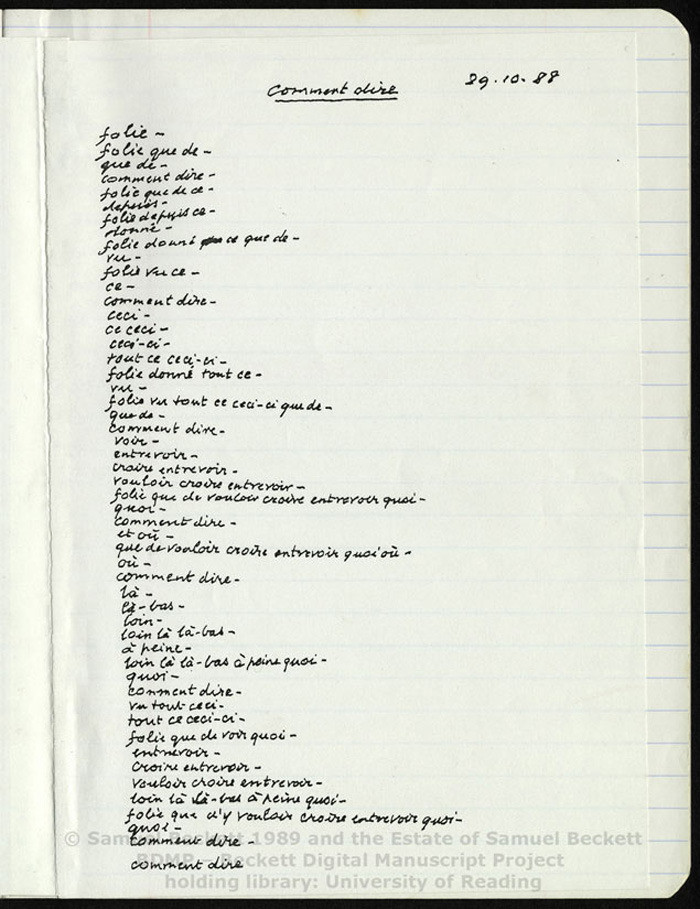 comment dire 29.10.88
folie –
folie que de –
que de –
comment dire –
folie que de ce –
depuis –
folie depuis ce –
donné –
folie donné ce que de –
vu –
folie vu ce –
ce –
comment dire –
ceci –
ce ceci –
ceci-ci –
tout ce ceci-ci –
folie donné tout ce –
vu –
folie vu tout ce ceci-ci que de –
que de –
comment dire –
voir –
entrevoir –
croire entrevoir –
vouloir croire entrevoir –
folie que de vouloir croire entrevoir quoi –
quoi –
comment dire –
et où –
que de vouloir croire entrevoir quoi où –
où –
comment dire –
là –
là-bas –
loin –
loin là là-bas –
à peine –
loin là là-bas à peine quoi –
quoi –
comment dire –
vu tout ceci –
tout ce ceci-ci –
folie que de voir quoi –
entrevoir –
croire entrevoir –
vouloir croire entrevoir –
loin là là-bas à peine quoi –
folie que d'y vouloir croire entrevoir quoi –
quoi –
comment dire –
comment dire
© Samuel Beckett 1989 and the Estate of Samuel Beckett
BDMP – Beckett Digital Manuscript Project
holding library: University of Reading